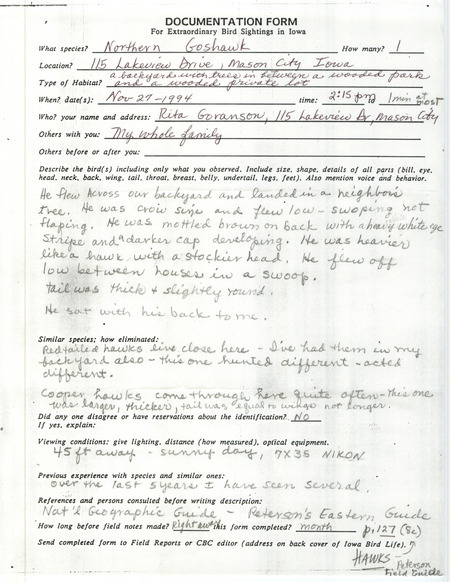 DOCUMENTATION FORM
For Extraordinary Bird Sightings in Iowa
What species? Northern Goshawk How many? 1
Location? 115 Lakeview Drive, Mason City Iowa
a backyard with trees in between a wooded park
Type of Habitat? and a wooded private lot
When? date(s): Nov 27-1994 time: 2:15 pm to 1 min at most
Who? your name and address: Rita Goranson, 115 Lakeview Dr, Mason City
Others with you: My whole family
Others before or after you:
Describe the bird(s) including only what you observed. Include size, shape, details of all parts (bill, eye,
head, neck, back, wing, tail, throat, breast, belly, undertail, legs, feet). Also mention voice and behavior.
He flew across our backyard and landed in a neighbors
tree. He was crow size and flew low - swoping not
flaping. He was mottled brown on back with a heavy white eye
stripe and a darker cap developing. He was heavier
like a hawk with a stockier head. He flew off
low between houses in a swoop.
tail was thick & slightly round.
He sat with his back to me.
Similar species; how eliminated:
Redtailed hawks live close here - I've had them in my
backyard also - this one hunted different - acted
different.
Cooper hawks come through here quite often - this one
was larger, thicker, tail was equal to wings not longer.
Did any one disagree or have reservations about the identification? NO
If yes, explain:
Viewing conditions: give lighting, distance (how measured), optical equipment.
45 ft away - sunny day, 7X35 NIKON
Previous experience with species and similar ones:
over the last 5 years I have seen several.
References and persons consulted before writing description:
Nat'l Geographic Guide - Peterson's Eastern Guide
How long before field notes made? Right away this form completed? month p. 127 (8c)
Send completed form to Field Reports or CBC editor (address on back cover of Iowa Bird Life).
HAWKS - Peterson
Field Guide